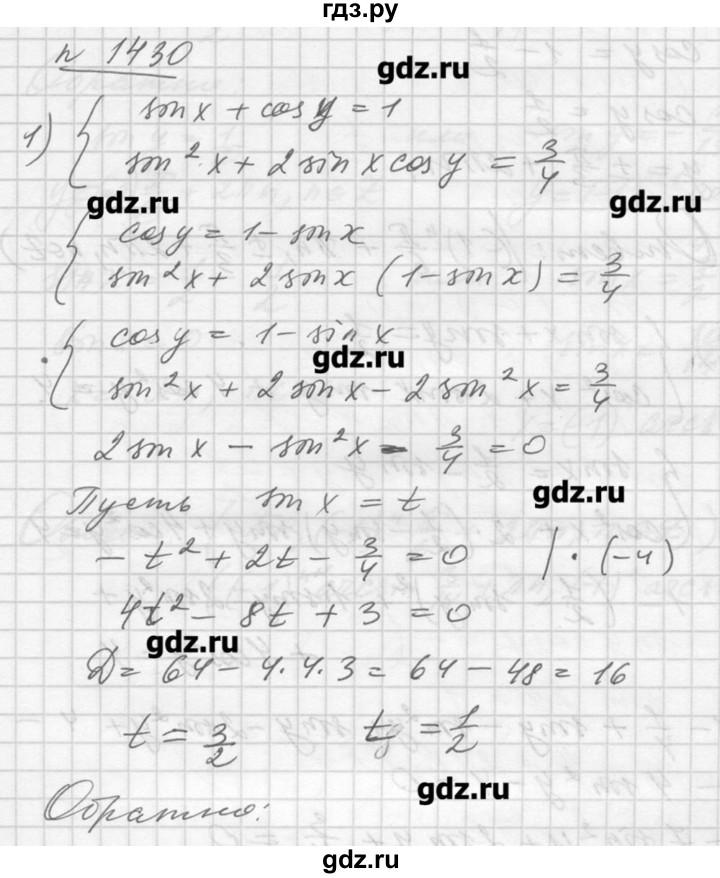 гдз.ру
n 1430
gdz.ru
1) { sin x + cos y = 1
sin² x + 2 sin x cos y = 3/4
gdz.ru gdz.ru
{ cos y = 1 - sin x
sin² x + 2 sin x (1 - sin x) = 3/4
{ cos y = 1 - sin x
gdz.ru
sin² x + 2 sin x - 2 sin² x = 3/4
2 sin x - sin² x - 3/4 = 0
gdz.ru
Пусть sin x = t
- t² + 2t - 3/4 = 0 | · (-4)
4t² - 8t + 3 = 0
gdz.ru
D = 64 - 4·4·3 = 64 - 48 = 16
t = 3/2 t = 1/2
gdz.ru
Обратно:
gdz.ru